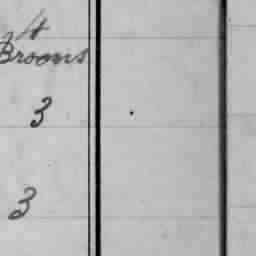 4
Brooms
3
3